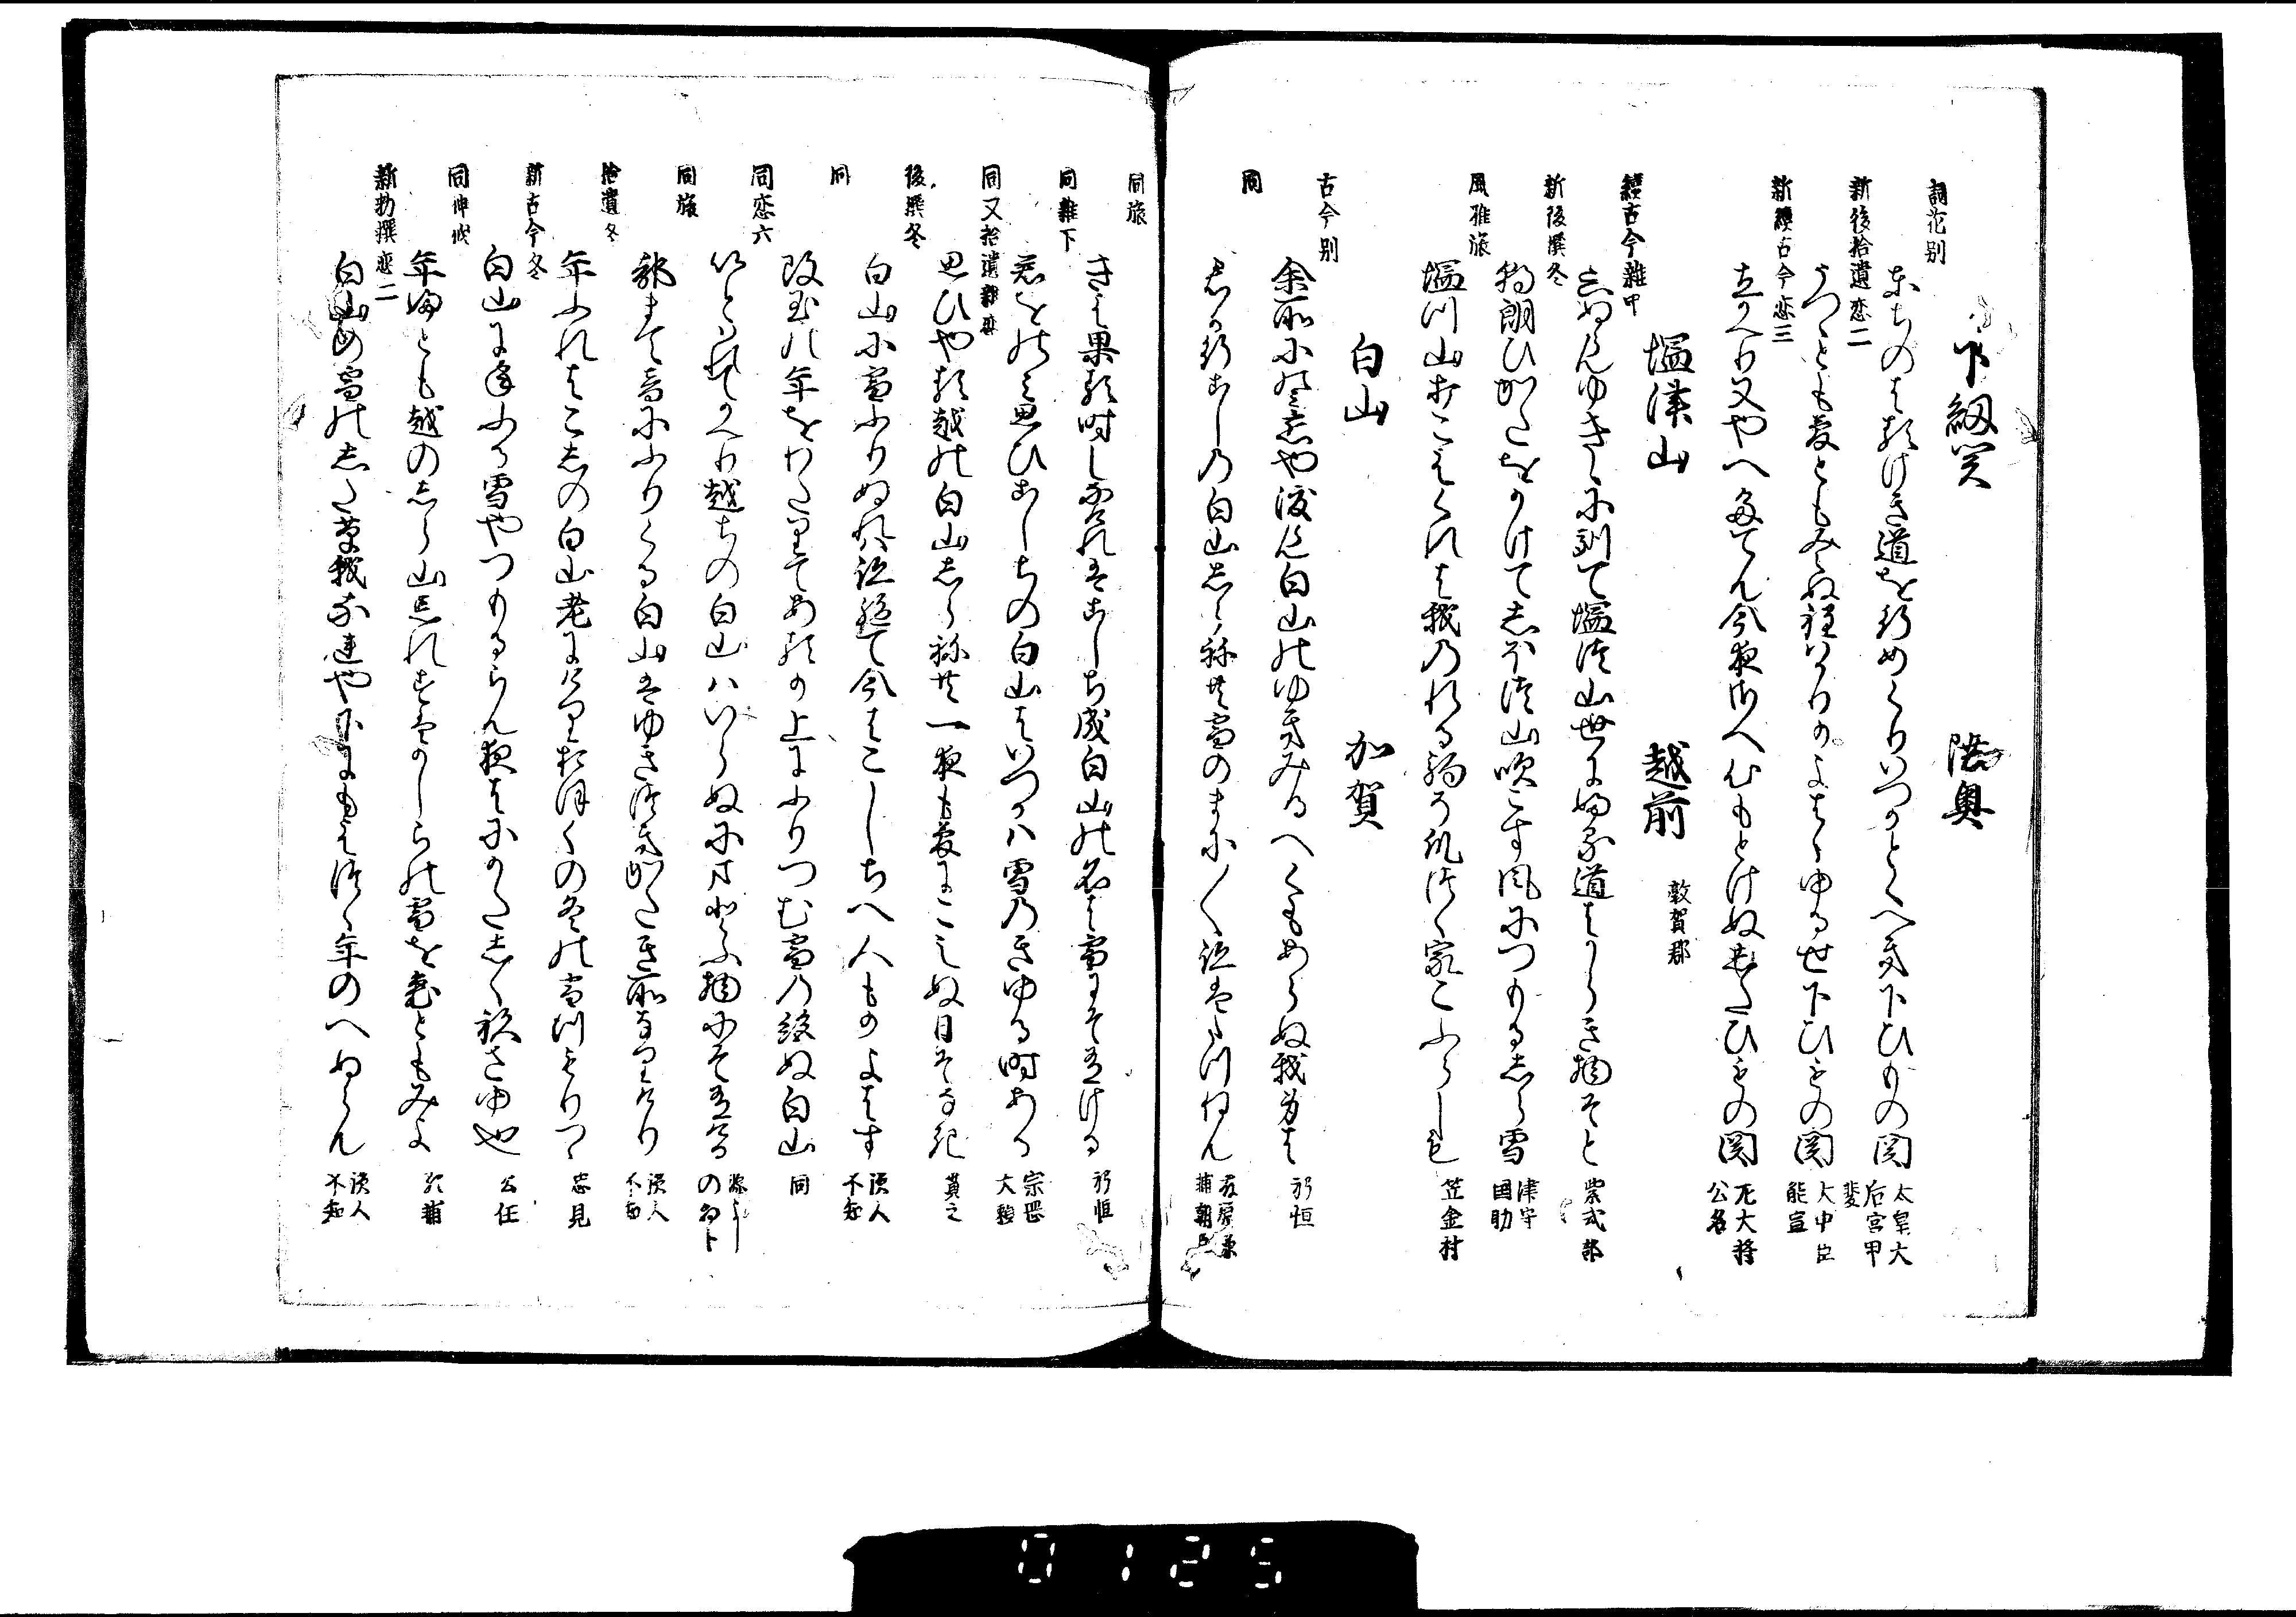 下紐関　陸奥
詞花別
東ちのはるけき道を行めくりいつかとくへき下ひもの関　太皇太后宮甲斐
新後拾遺恋二
うつゝとも夢ともみえぬ程はかりかよはゝゆるせ下ひもの関　大中臣能宣
新続古今恋三
立かへり又やへたてん今夜さへ心もとけぬしたひもの関　左大将公名
塩津山　越前　敦賀郡
続古今雑中
しりぬらんゆきゝに馴て塩津山世にふる道はからき物そと　紫式部
新後撰冬
朝朗ひかたをかけてしほつ山吹こす風につもるしら雪　津守国助
風雅旅
塩川山打こえくれは我のれる駒そ爪つく家こふらしも　笠金村
白山　加賀
古今別
余所にのみ恋や渡らん白山のゆきみるへくもあらぬ我身は　躬恒
同
君か行こしの白山しらねとも雪のまに〳〵跡はたつねん　藤原兼輔朝臣
同旅
きえ果る時しなけれはこしち成白山の名は雪にそ有ける　躬恒
同雑下
君をのみ思ひこしちの白山はいつかは雪のきゆる時ある　宗岳大頼
同又拾遺雑恋
思ひやる越の白山しらねとも一夜も夢にこえぬ日そなき　貫之
後撰冬
白山に雪ふりぬれは跡絶て今はこしちへ人もかよはす　読人不知
同
改玉の年をわたりてあるか上にふりつむ雪の絶ぬ白山　同
同恋六
いとはれてかへり越ちの白山はいらぬにまとふ物にそ有ける
同旅
都まて音にふりくる白山はゆきつきかたき所なりけり　読人不知
拾遺冬
年ふれはこしの白山老にけりおほくの冬の雪つもりつゝ　忠見
新古今冬
白山に年ふる雪やつもるらん夜はにかたしく袂さゆ也　公任
同神祇
年ふとも越のしら山忘れすはかしらの雪を哀ともみよ　顕輔
新勅撰恋二
白山の雪のした草我なれや下にもえつゝ年のへぬらん　読人不知
0125